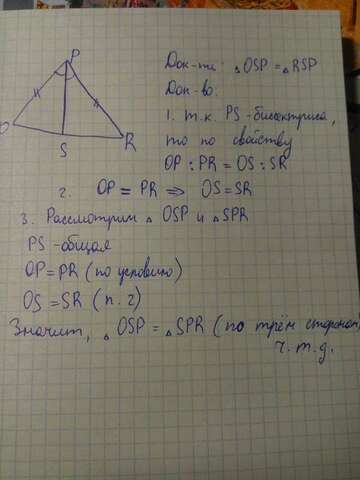 P
O
S
R
Док-ть: △OSP = △RSP
Док-во:
1. т.к. PS - биссектриса,
то по свойству
OP : PR = OS : SR
2. OP = PR ⇒ OS = SR
3. Рассмотрим △ OSP и △SPR
PS - общая
OP = PR (по условию)
OS = SR (п. 2)
Значит, △ OSP = △SPR (по трём сторонам)
ч. т. д.